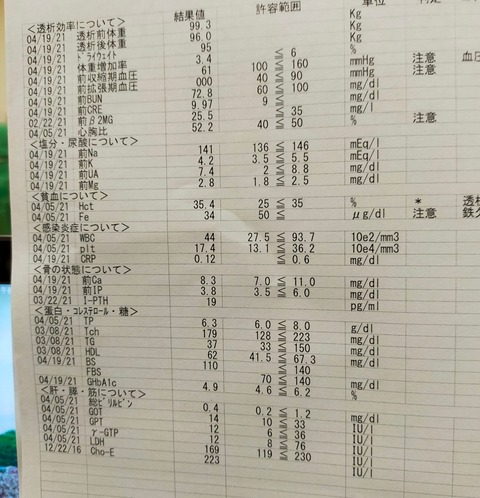 結果値 許容範囲 単位
<透析効率について>
04/19/21 透析前体重 99.3 Kg
04/19/21 透析後体重 96.0 Kg
ﾄﾞﾗｲｳｪｲﾄ 95 Kg
04/19/21 体重増加率 3.4 ≦ 6 %
04/19/21 前収縮期血圧 61 100 ≦ 160 mmHg 注意 血圧
04/19/21 前拡張期血圧 000 40 ≦ 90 mmHg 注意
04/19/21 前BUN 72.8 60 ≦ 100 mg/dl
04/19/21 前CRE 9.97 9 ≦ mg/dl
02/22/21 前β2MG 25.5 ≦ 35 mg/l
04/05/21 心胸比 52.2 40 ≦ 50 % 注意
<塩分・尿酸について>
04/19/21 前Na 141 136 ≦ 146 mEq/l
04/19/21 前K 4.2 3.5 ≦ 5.5 mEq/l
04/19/21 前UA 7.4 2 ≦ 8.8 mg/dl
04/19/21 前Mg 2.8 1.8 ≦ 2.5 mg/dl
<貧血について>
04/19/21 Hct 35.4 25 ≦ 35 % *
04/05/21 Fe 34 50 ≦ μg/dl 注意
<感染炎症について>
04/05/21 WBC 44 27.5 ≦ 93.7 10e2/mm3
04/05/21 plt 17.4 13.1 ≦ 36.2 10e4/mm3
04/19/21 CRP 0.12 ≦ 0.6 mg/dl
<骨の状態について>
04/19/21 前Ca 8.3 7.0 ≦ 11.0 mg/dl
04/19/21 前IP 3.8 3.5 ≦ 6.0 mg/dl
03/22/21 I-PTH 19 pg/ml
<蛋白・ｺﾚｽﾃﾛｰﾙ・糖>
04/05/21 TP 6.3 6.0 ≦ 8.0 g/dl
03/08/21 Tch 179 128 ≦ 223 mg/dl
03/08/21 TG 37 33 ≦ 150 mg/dl
03/08/21 HDL 62 41.5 ≦ 67.3 mg/dl
04/19/21 BS 110 ≦ 140 mg/dl
FBS 70 ≦ 140
04/19/21 GHbA1c 4.9 4.6 ≦ 6.2 %
<肝・膵・筋について>
04/05/21 総ﾋﾞﾘﾙﾋﾞﾝ 0.4 0.2 ≦ 1.2 mg/dl
04/05/21 GOT 14 10 ≦ 33 IU/l
04/05/21 GPT 12 6 ≦ 36 IU/l
04/05/21 γ-GTP 12 8 ≦ 76 IU/l
04/05/21 LDH 169 119 ≦ 230 IU/l
12/22/16 Cho-E 223 IU/l